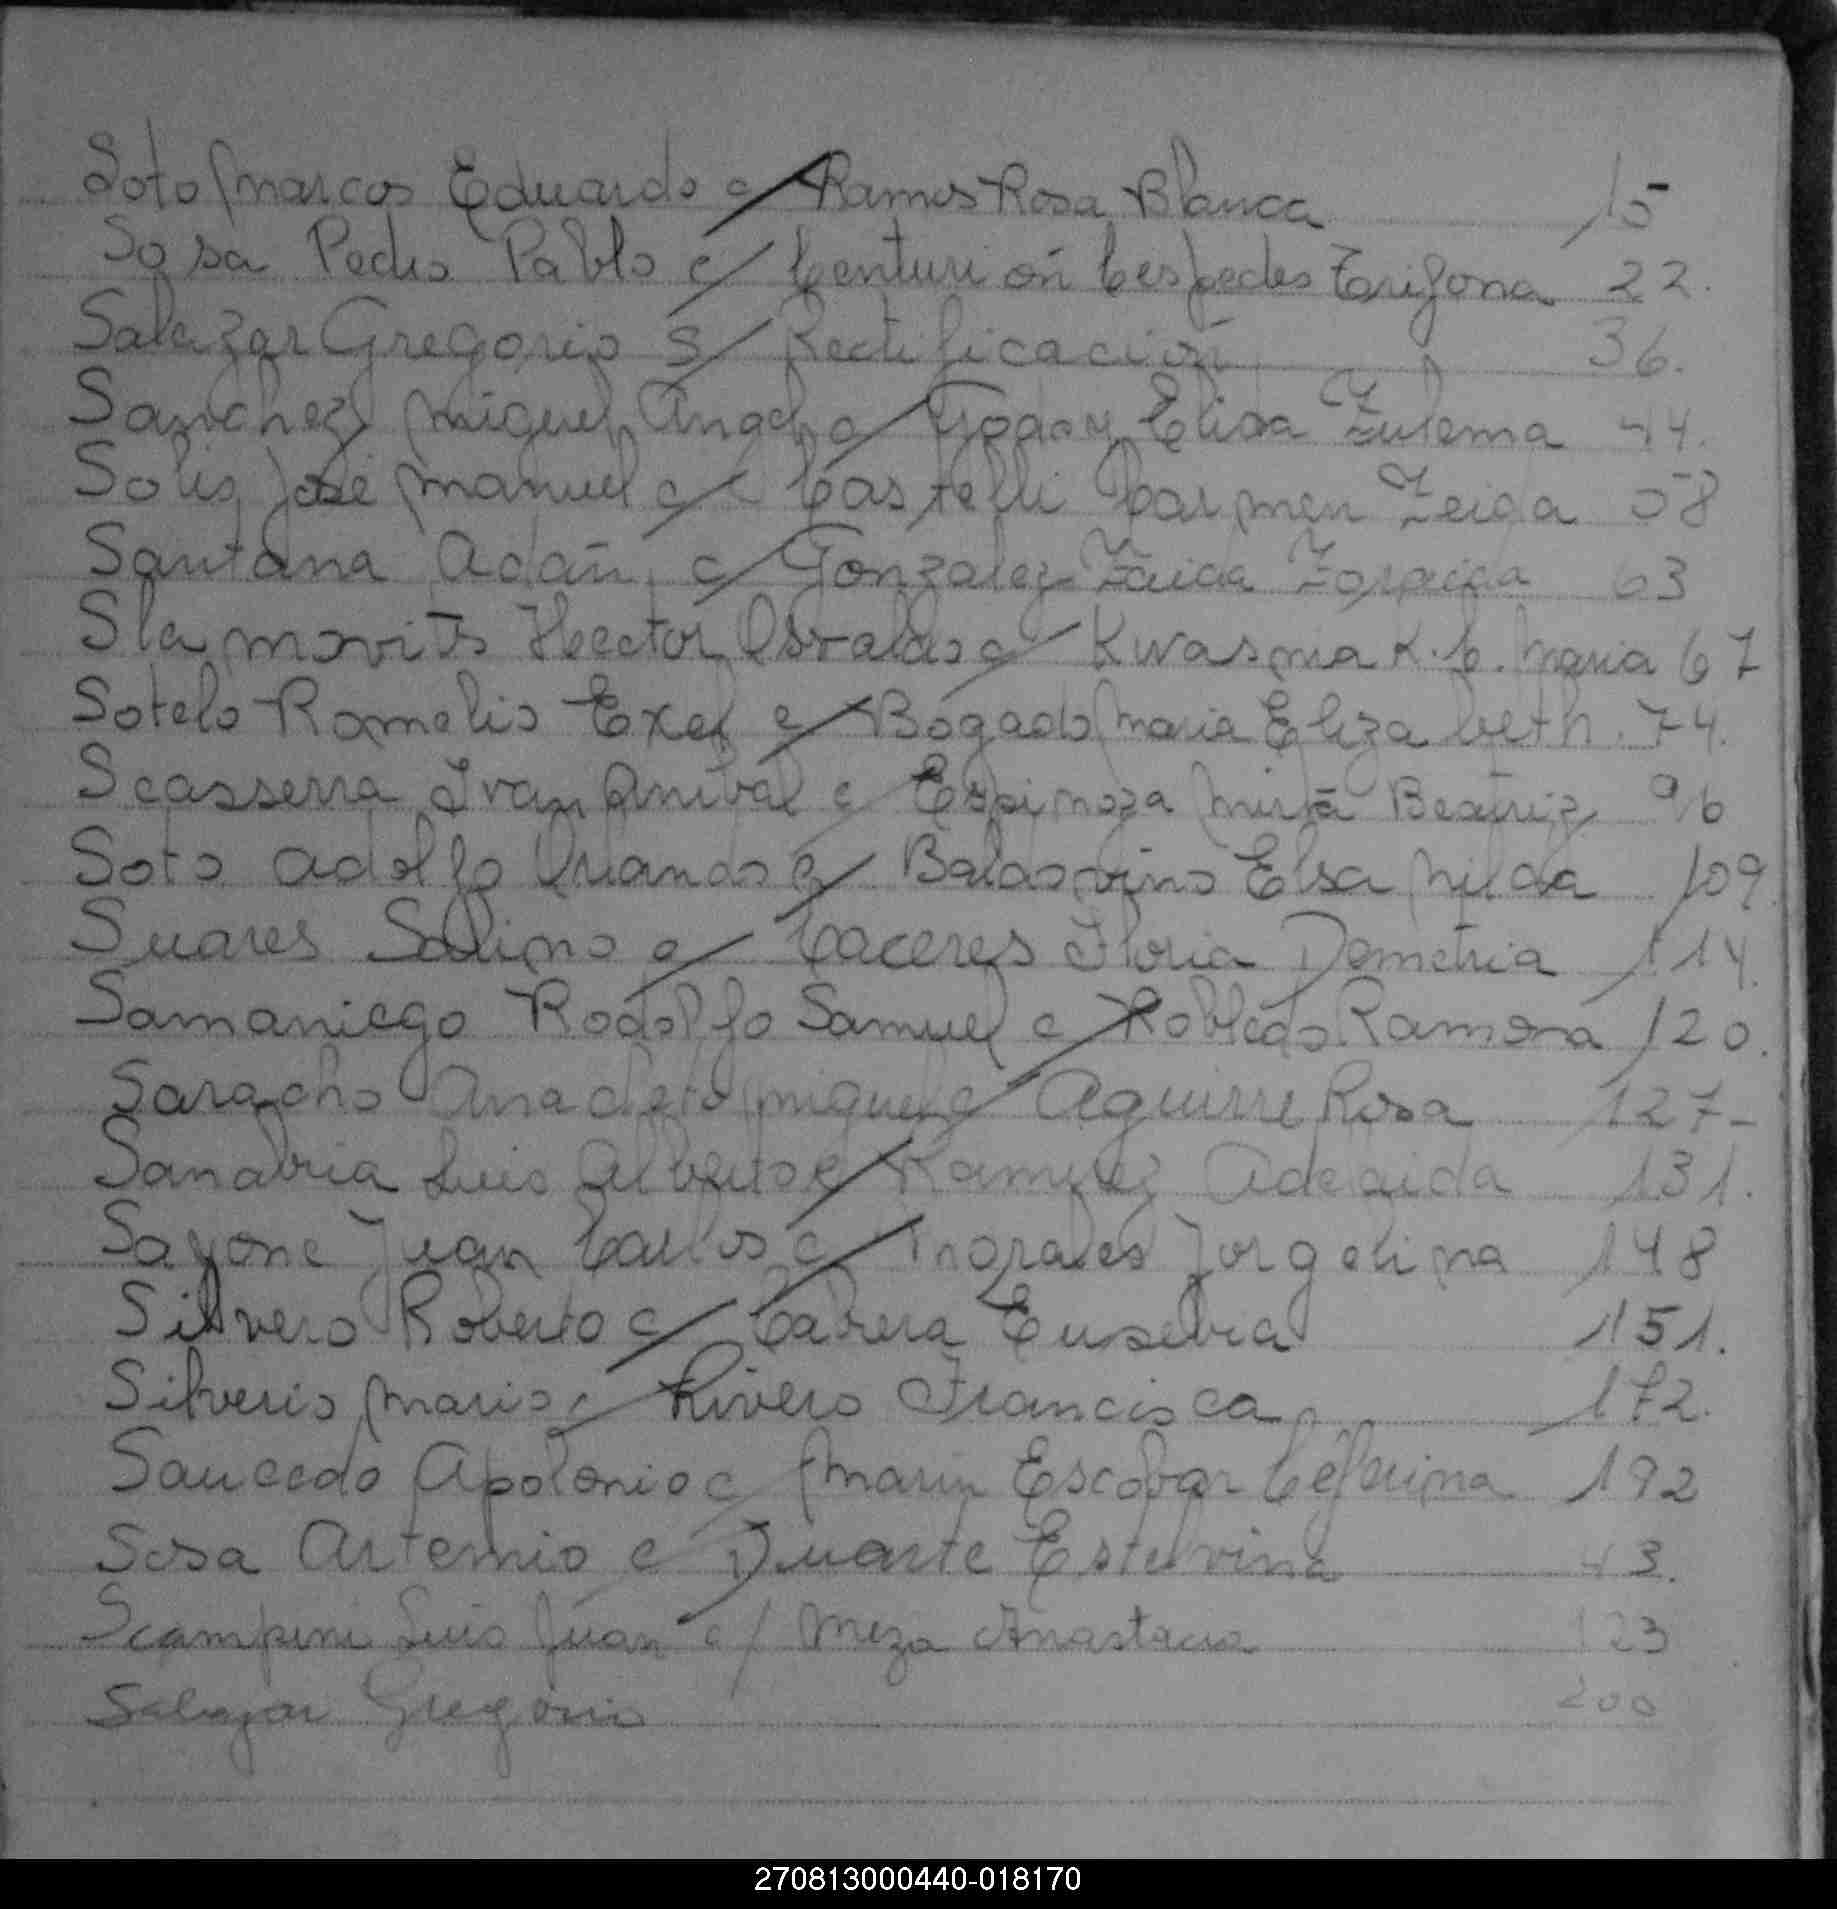 Soto Marcos Eduardo c/ Ramos Rosa Blanca 15
Sosa Pedro Pablo c/ Centurión Cespedes Trifona 22.
Salazar Gregorio s/ Rectificación 36.
Sanchez Miguel Angel c/ Godoy Elisa Zulema 44.
Solis José Manuel c/ Castelli Carmen Zeida 58
Santana Adán c/ Gonzalez Zaida Zoraida 63
Slamovits Hector Osvaldo c/ Kwasnia K. C. Maria 67
Sotelo Romelio Exel c/ Bogado Maria Elizabeth. 74.
Scasserra Ivan Anibal c/ Espinoza Mirta Beatriz 96
Soto Adolfo Orlando c/ Baldovino Elsa Nilda 109.
Suares Salino c/ Caceres Floria Demetria 114.
Samaniego Rodolfo Samuel c/ Robledo Ramona 120.
Saracho Anacleto Miguel c/ Aguirre Rosa 127-
Sanabria Luis Alberto c/ Ramirez Adelaida 131.
Sayone Juan Carlos c/ Morales Jorgelina 148
Silvero Roberto c/ Cabrera Eusebia 151.
Silverio Mario c/ Rivero Francisca 172.
Saucedo Apolonio c/ Marin Escobar Céferina 192
Sosa Artemio c/ Duarte Estelvina 43.
Scampini Luis Juan c/ Meza Anastacia 123
Salazar Gregorio 200
270813000440-018170